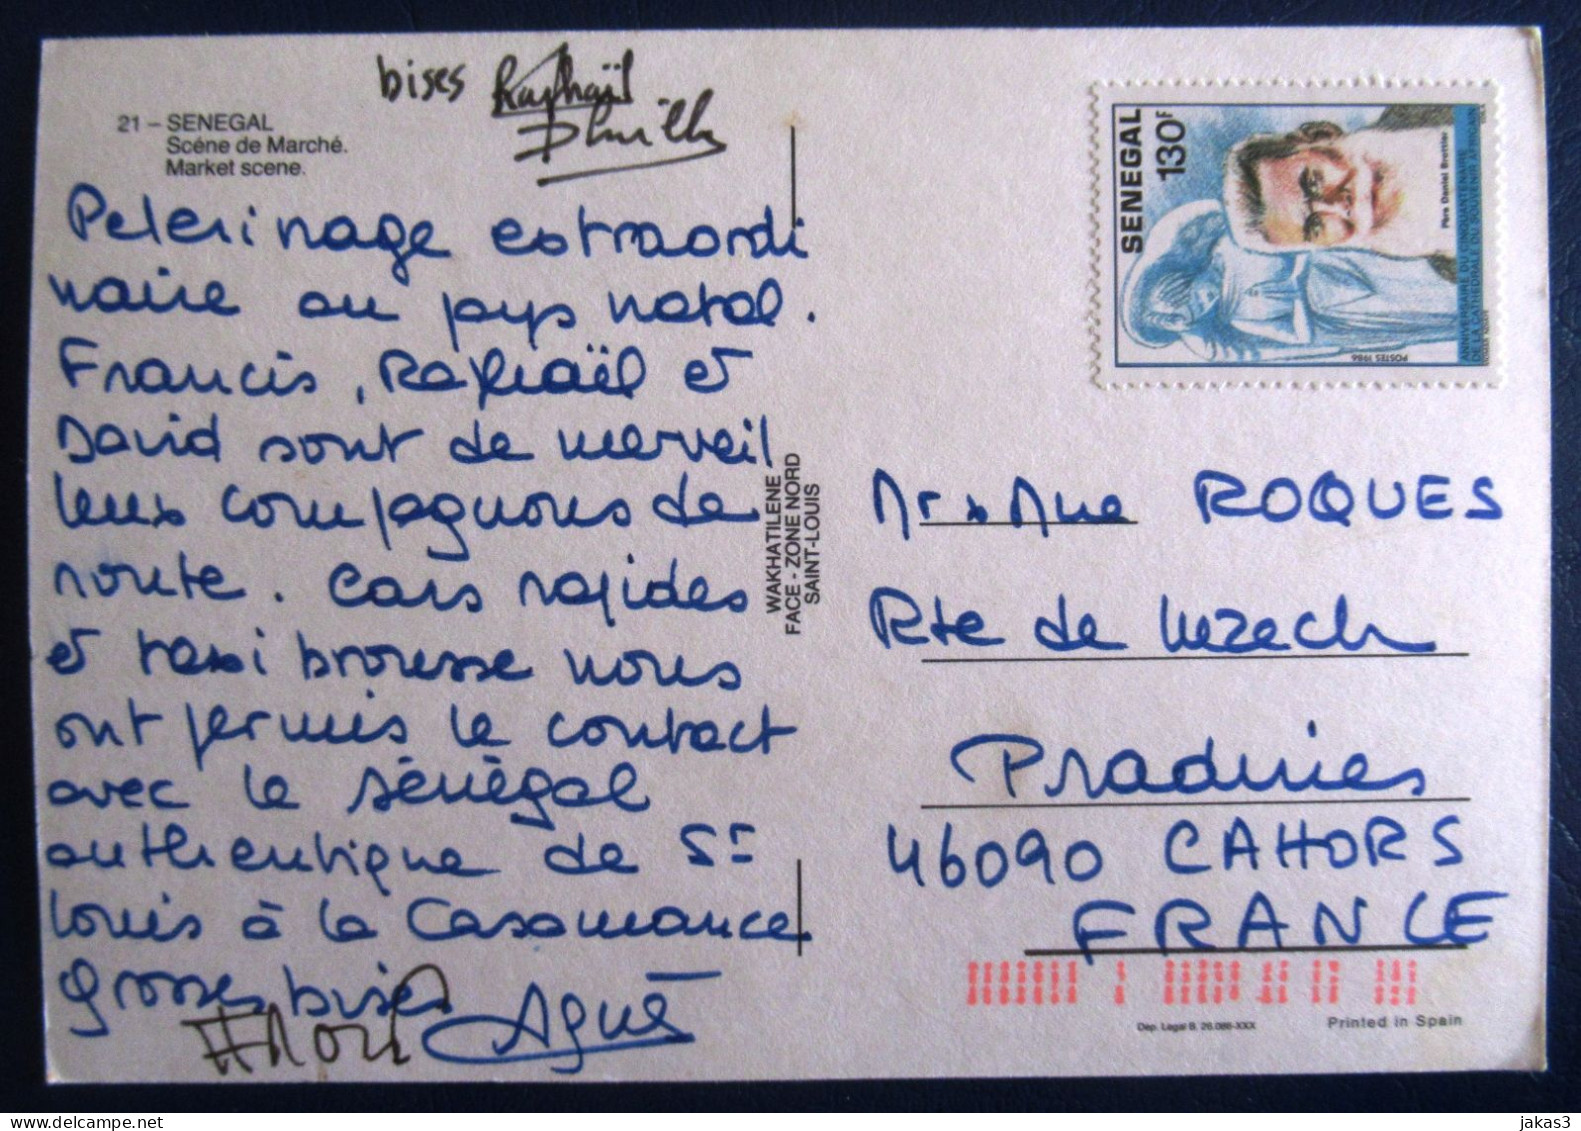 bises Raphaël
21 – SENEGAL
Scéne de Marché.
Market scene.
Pelerinage extraordi
naire au pays natal.
Francis, Raphaël et
David sont de merveil
leux compagnons de
route. Cars rapides
et taxi brousse nous
ont permis le contact
avec le Sénégal
authentique de St
Louis à la Casamance
grosses bises
Agnès
WAKHATILENE
FACE - ZONE NORD
SAINT-LOUIS
SENEGAL
130F
Père Daniel Brottier
ANNIVERSAIRE DU CINQUANTENAIRE
DE LA CATHEDRALE DU SOUVENIR AFRICAIN
POSTES 1986
Mr & Mme ROQUES
Rte de Luzech
Pradines
46090 CAHORS
FRANCE
Dep. Legal B. 26.086-XXX
Printed in Spain
www.delcampe.net
jakas3